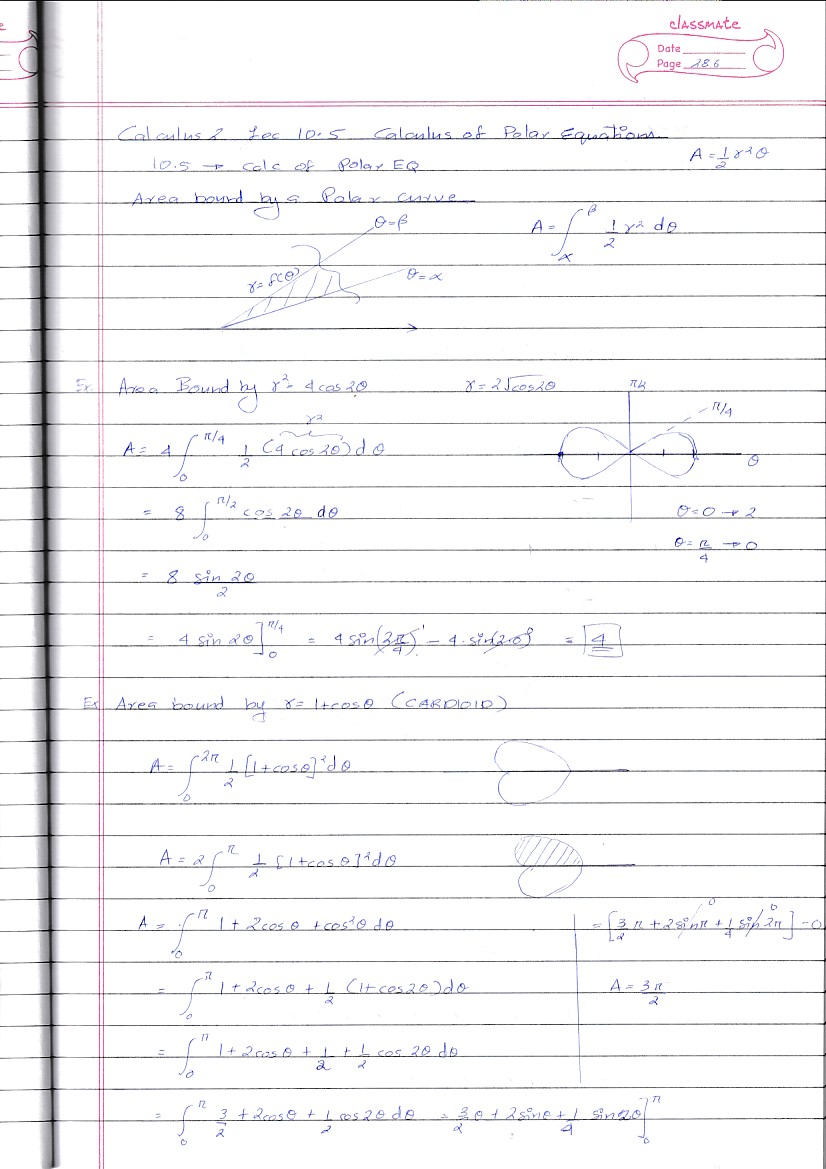 classmate
Date
Page 186
Calculus 2 Lec 10.5 Calculus of Polar Equations
10.5 → calc of Polar EQ
A = 1/2 r²θ
Area bound by a Polar curve
θ=β
A = ∫_α^β 1/2 r² dθ
r = f(θ)
θ=α
Ex. Area Bound by r² = 4cos2θ
r = 2√cos2θ
π/2
π/4
θ
r²
A = 4 ∫_0^{π/4} 1/2 (4 cos2θ) dθ
= 8 ∫_0^{π/2} cos 2θ dθ
θ=0 → 2
θ=π/4 → 0
= 8 sin 2θ/2
= 4 sin 2θ ]_0^{π/4} = 4 sin(2π/4) 1 - 4·sin(2·0) 0 = 4
Ex Area bound by r = 1+cosθ (CARDIOID)
A = ∫_0^{2π} 1/2 [1+cosθ]² dθ
A = 2 ∫_0^π 1/2 [1+cosθ]² dθ
A = ∫_0^π 1+2cosθ + cos²θ dθ
= ∫_0^π 1+2cosθ + 1/2 (1+cos2θ) dθ
= ∫_0^π 1+2cosθ + 1/2 + 1/2 cos 2θ dθ
= ∫_0^π 3/2 + 2cosθ + 1/2 cos2θ dθ = 3/2 θ + 2sinθ + 1/4 sin2θ ]_0^π
= [3/2 π + 2sinπ 0 + 1/4 sin2π 0] - 0
A = 3π/2